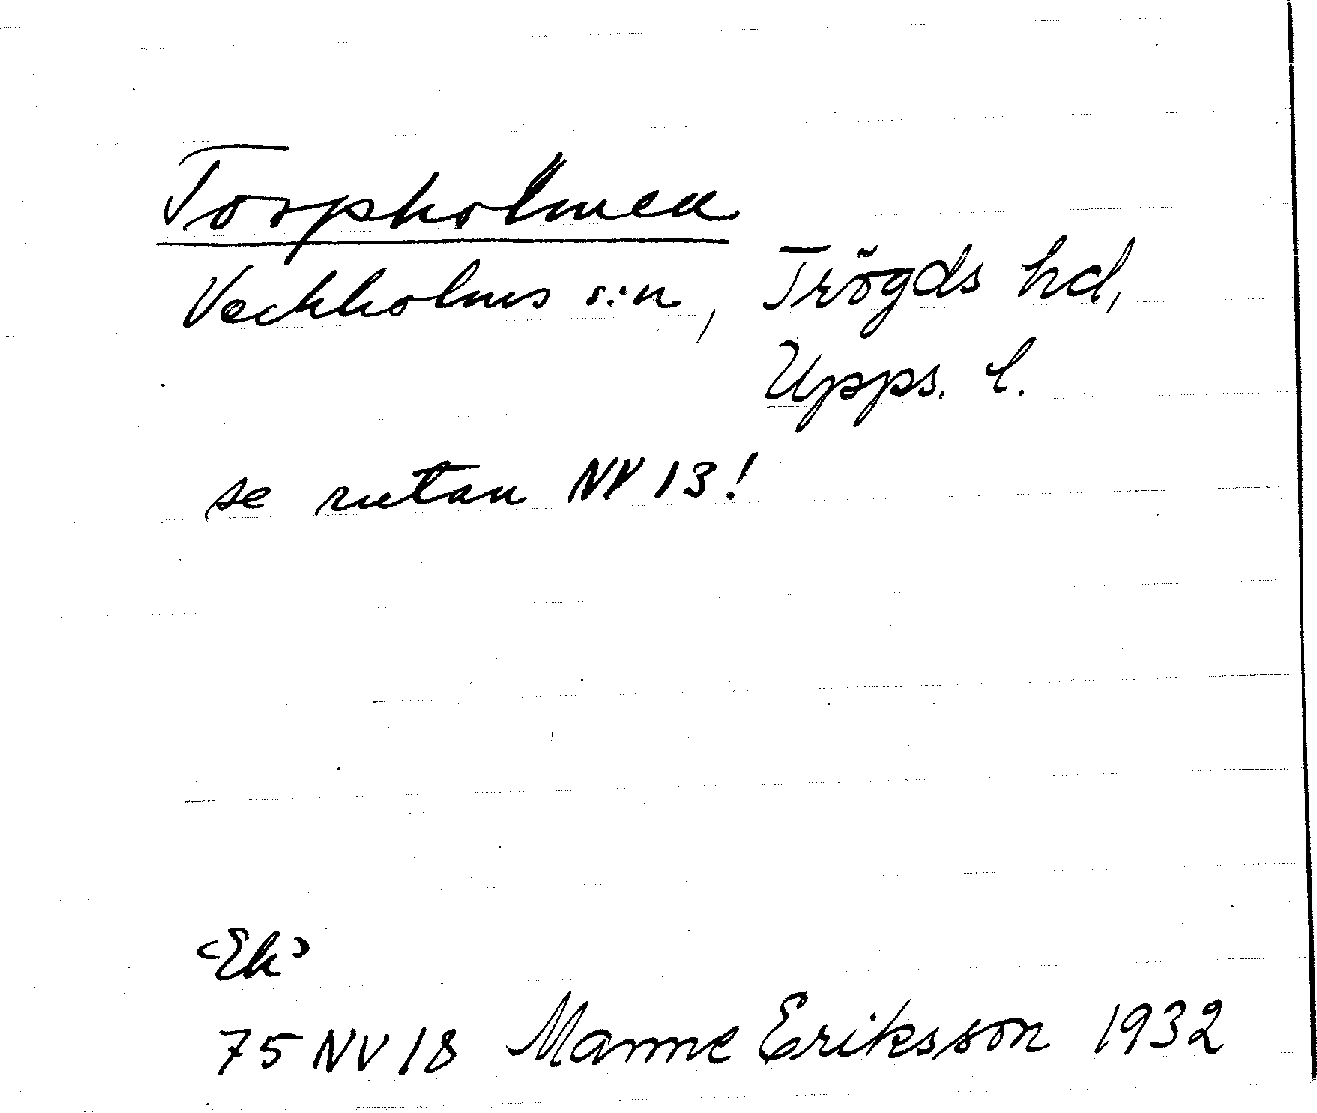 Torpholmen
Veckholms s:n, Trögds hd,
Upps. l.
se rutan NV 13!
<Ek>
75 NV 18 Manne Eriksson 1932